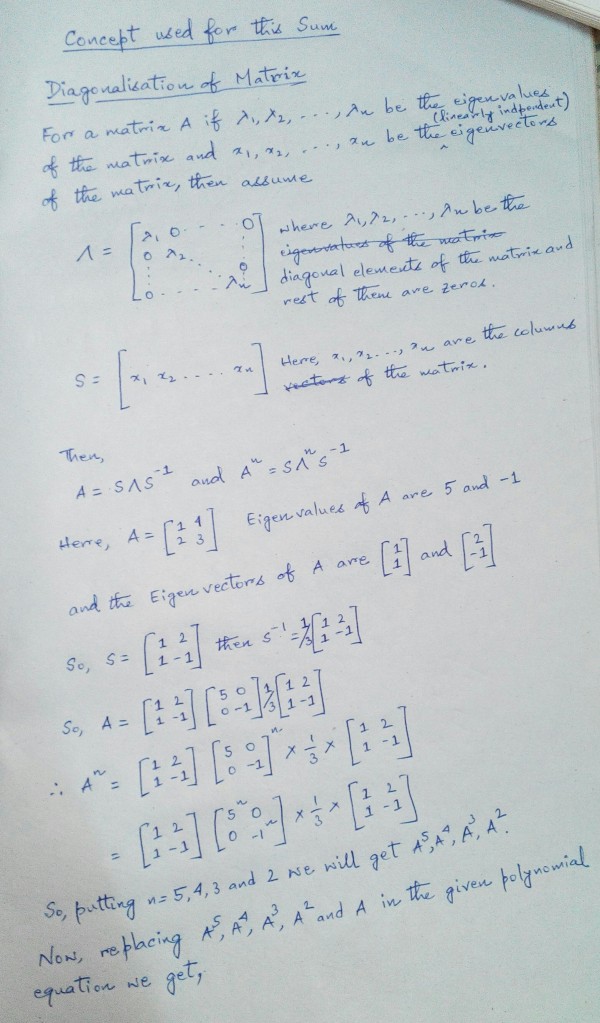 Concept used for this Sum
Diagonalisation of Matrix
For a matrix A if λ1, λ2, ----, λn be the eigenvalues
of the matrix and x1, x2, ----, xn be the (linearly indpendent) eigenvectors
of the matrix, then assume
Λ = [λ1 0 ---- 0
0 λ2 ...
... 0
0 ..... λn]
where λ1, λ2, ---, λn be the
eigenvalues of the matrix
diagonal elements of the matrix and
rest of them are zeros.
S = [x1 x2 ---- xn]
Here, x1, x2 ---, xn are the columns
vectors of the matrix.
Then,
A = SΛS^-1 and A^n = SΛ^n S^-1
Here, A = [1 4; 2 3] Eigenvalues of A are 5 and -1
and the Eigen vectors of A are [1; 1] and [2; -1]
So, S = [1 2; 1 -1] then S^-1 = 1/3 [1 2; 1 -1]
So, A = [1 2; 1 -1] [5 0; 0 -1] 1/3 [1 2; 1 -1]
∴ A^n = [1 2; 1 -1] [5 0; 0 -1]^n × 1/3 × [1 2; 1 -1]
= [1 2; 1 -1] [5^n 0; 0 -1^n] × 1/3 × [1 2; 1 -1]
So, putting n = 5, 4, 3 and 2 we will get A^5, A^4, A^3, A^2.
Now, replacing A^5, A^4, A^3, A^2 and A in the given polynomial
equation we get,